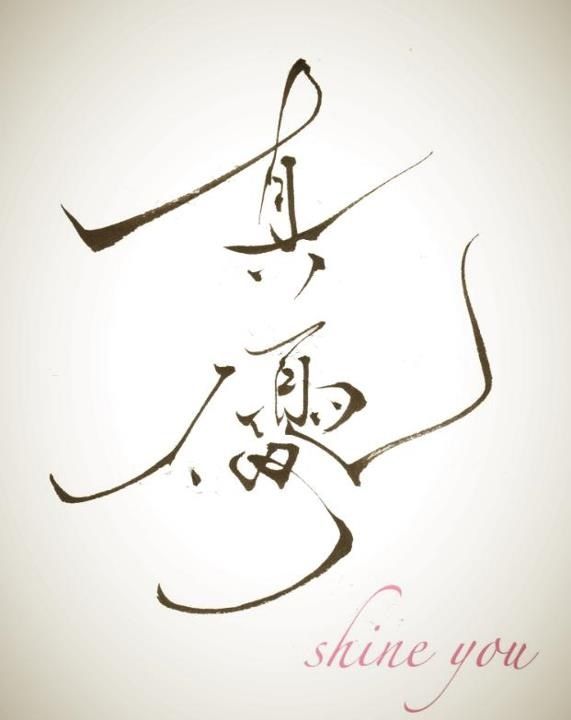 真
優
shine you